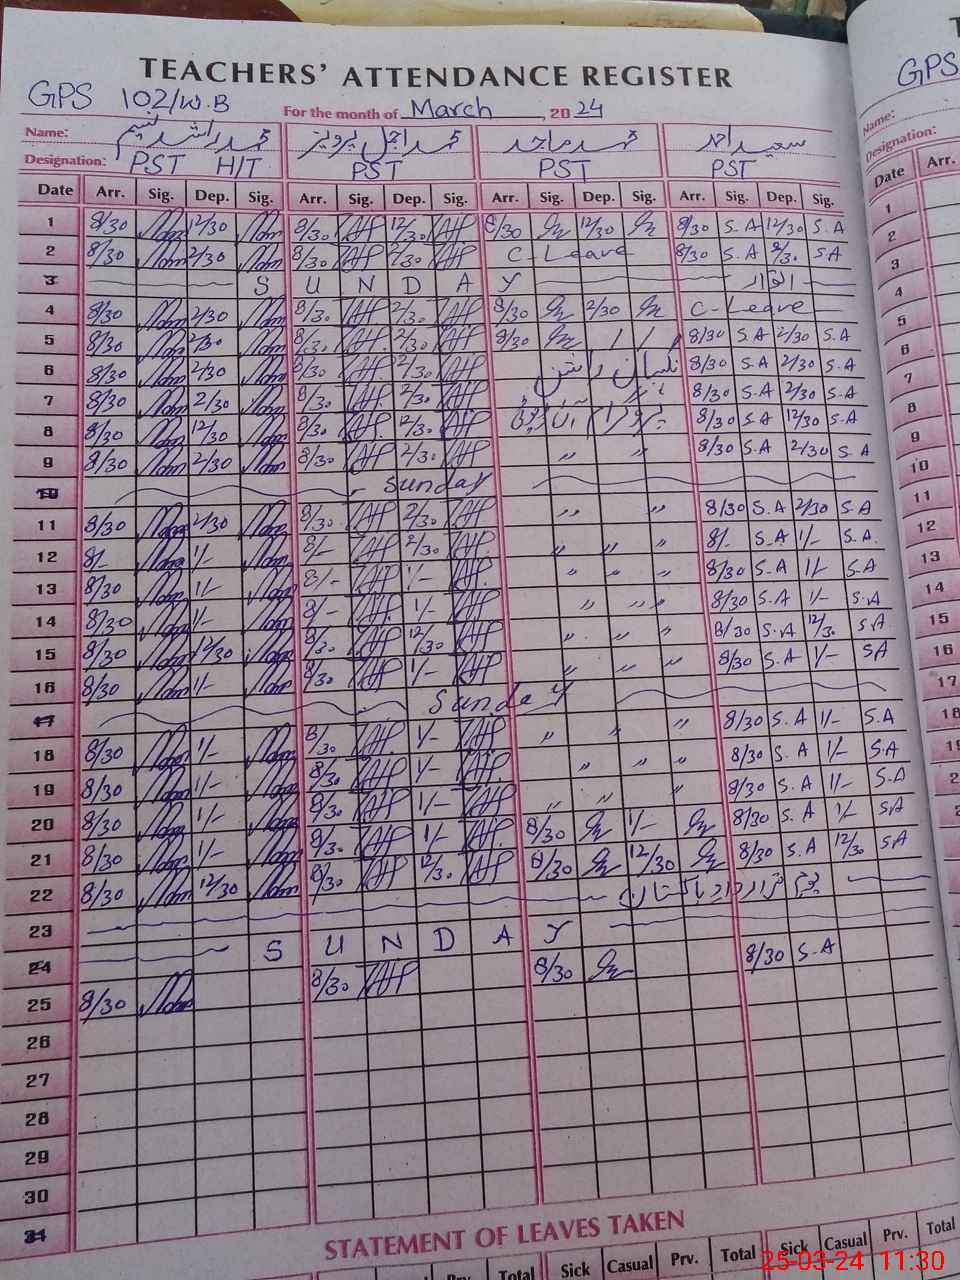 TEACHERS' ATTENDANCE REGISTER
GPS 102/W.B For the month of March, 2024
GPS
Name: محمد راشد نسیم محمد اجمل پرویز محمد ماجد سعید احمد
Name:
Designation: PST H/T PST PST PST
Designation:
Date Arr. Sig. Dep. Sig. Arr. Sig. Dep. Sig. Arr. Sig. Dep. Sig. Arr. Sig. Dep. Sig.
Date Arr.
1 8/30 12/30 8/30 12/30 8/30 12/30 8/30 S.A 12/30 S.A
2 8/30 2/30 8/30 2/30 C-Leave 8/30 S.A 2/30 S.A
3 SUNDAY اتوار
4 8/30 2/30 8/30 2/30 8/30 2/30 C-Leave
5 8/30 2/30 8/30 2/30 8/30 8/30 S.A 2/30 S.A
6 8/30 2/30 8/30 2/30 راشن 8/30 S.A 2/30 S.A
7 8/30 2/30 8/30 2/30 8/30 S.A 2/30 S.A
8 8/30 12/30 8/30 12/30 8/30 S.A 12/30 S.A
9 8/30 2/30 8/30 2/30 " " 8/30 S.A 2/30 S.A
10 Sunday
11 8/30 2/30 8/30 2/30 " " 8/30 S.A 2/30 S.A
12 8/- 1/- 8/- 2/30 " " " 8/- S.A 1/- S.A.
13 8/30 1/- 8/- 1/- " " " 8/30 S.A 1/- S.A
14 8/30 1/- 8/- 1/- " " " 8/30 S.A 1/- S.A
15 8/30 12/30 8/30 12/30 " " " 8/30 S.A 12/30 S.A
16 8/30 1/- 8/30 1/- " " " 8/30 S.A 1/- S.A
17 Sunday
18 8/30 1/- 8/30 1/- " " 8/30 S.A 1/- S.A
19 8/30 1/- 8/30 1/- " " " 8/30 S.A 1/- S.A
20 8/30 1/- 8/30 1/- " " " 8/30 S.A 1/- S.A
21 8/30 1/- 8/30 1/- 8/30 1/- 8/30 S.A 1/- S.A
22 8/30 12/30 8/30 12/30 8/30 12/30 8/30 S.A 12/30 S.A
23 یوم قرارداد پاکستان
24 SUNDAY
25 8/30 8/30 8/30 8/30 S.A
26
27
28
29
30
31
STATEMENT OF LEAVES TAKEN
Prv. Total Sick Casual Prv. Total Sick Casual Prv. Total
1
2
3
4
5
6
7
8
9
10
11
12
13
14
15
16
17
18
25-03-24 11:30